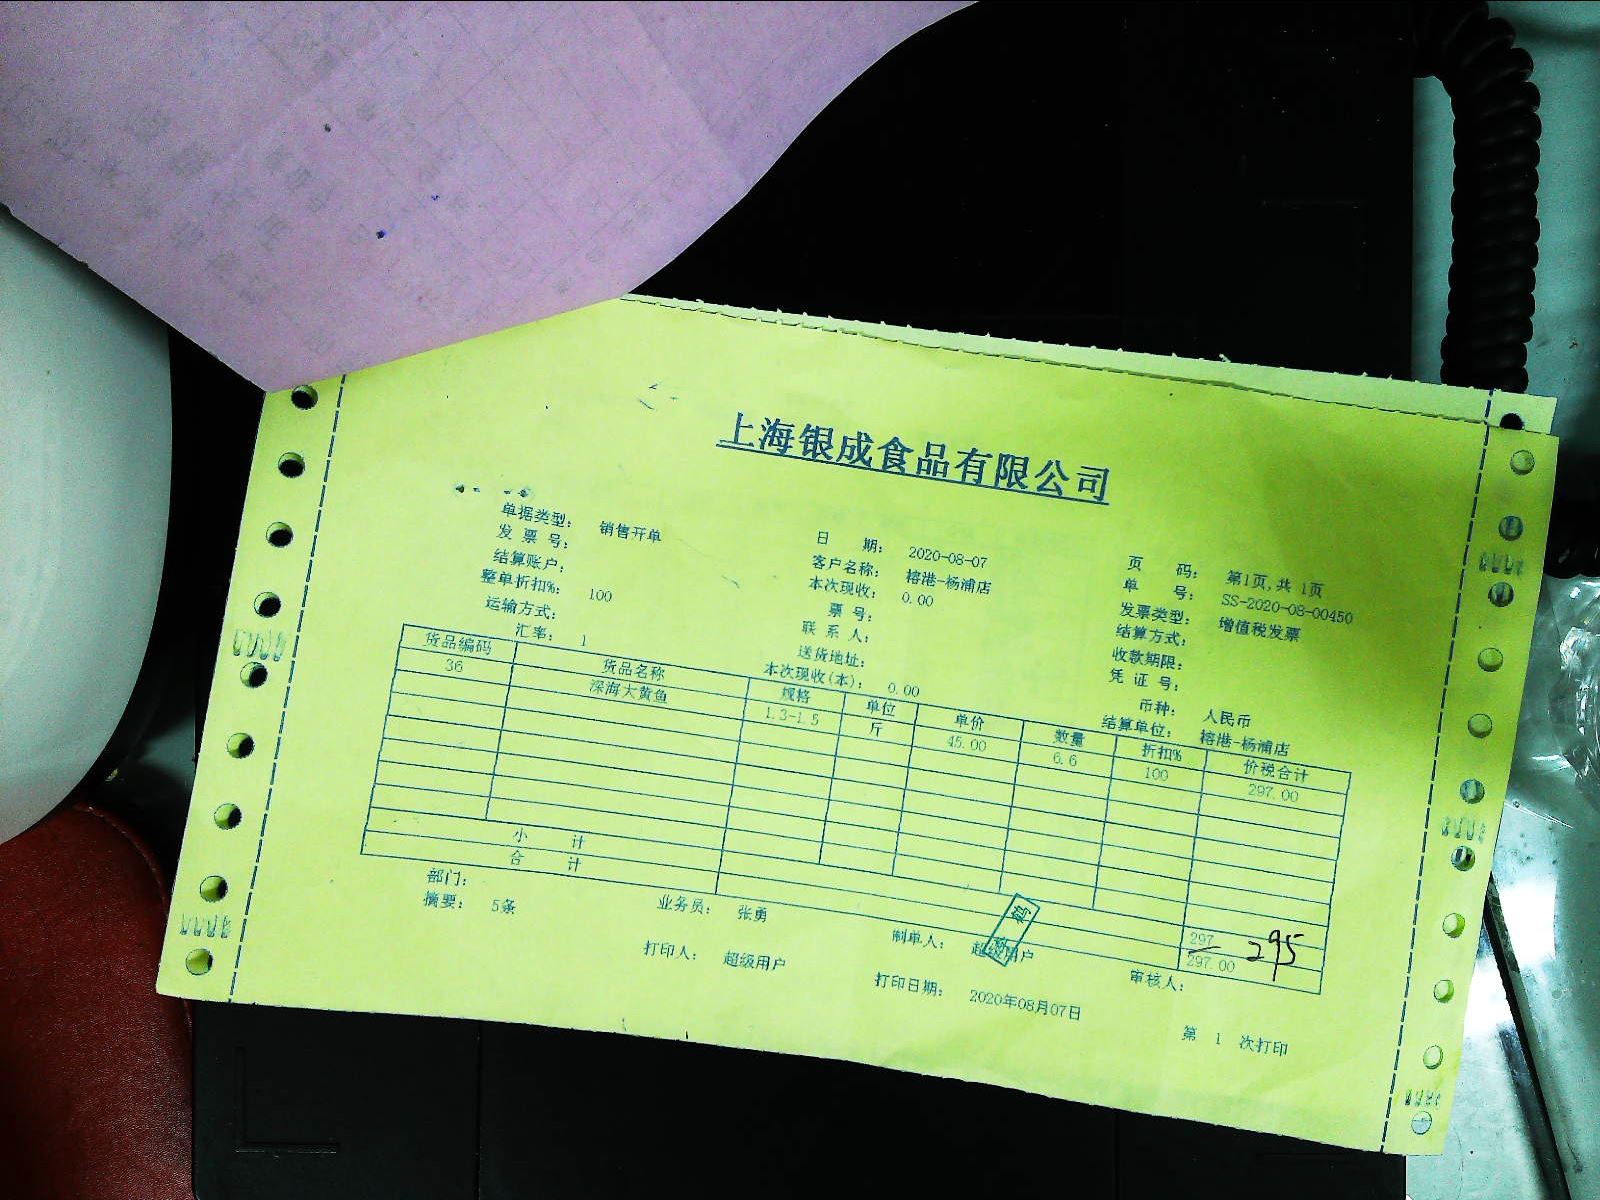 上海银成食品有限公司
单据类型: 销售开单 日 期: 2020-08-07 页 码: 第1页,共 1页
发 票 号: 客户名称: 榕港-杨浦店 单 号: SS-2020-08-00450
结算账户: 本次现收: 0.00 发票类型: 增值税发票
整单折扣%: 100 票 号: 结算方式:
运输方式: 联 系 人: 收款期限:
汇率: 1 送货地址: 凭 证 号:
本次现收(本): 0.00 币种: 人民币
结算单位: 榕港-杨浦店
货品编码 货品名称 规格 单位 单价 数量 折扣% 价税合计
36 深海大黄鱼 1.3-1.5 斤 45.00 6.6 100 297.00
小 计 297
合 计 297.00 295
部门: 业务员: 张勇 制单人: 超级用户 审核人:
摘要: 5条
打印人: 超级用户 打印日期: 2020年08月07日 第 1 次打印